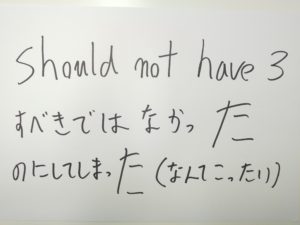 should not have 3
すべきではなかった
のにしてしまった(なんてこったい)